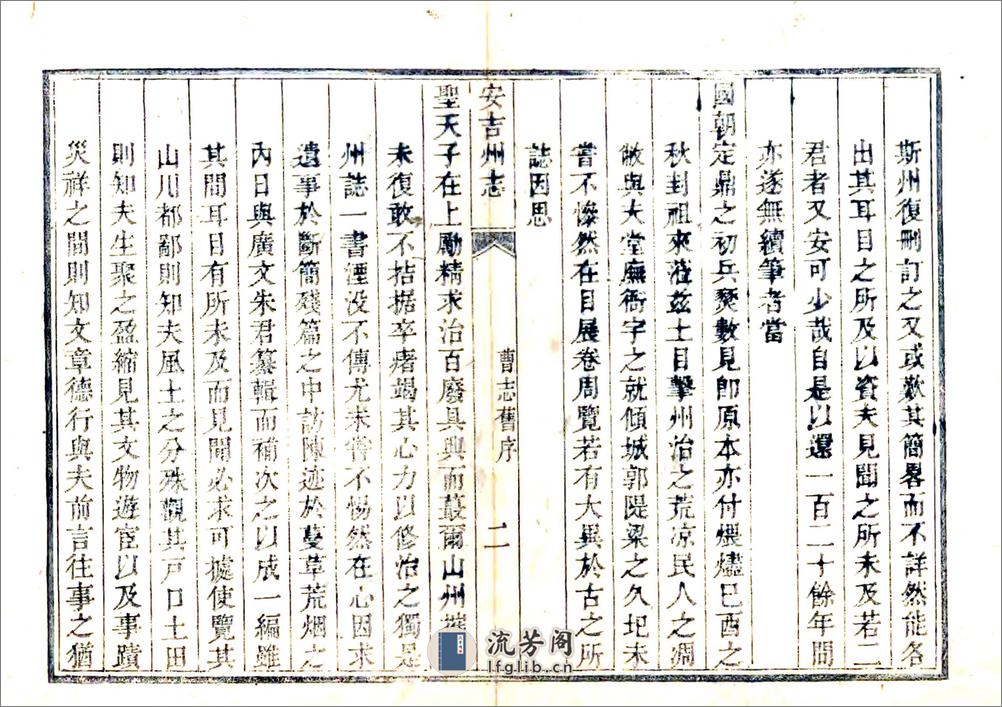 斯州復刪訂之又或歎其簡畧而不詳然能各
出其耳目之所及以資夫見聞之所未及若二
君者又安可少哉自是以還一百二十餘年間
亦遂無續筆者當
國朝定鼎之初兵燹數見郎原本亦付煨燼巳酉之
秋封祖來涖兹土目擊州治之荒凉民人之凋
敝與夫堂廡衙宇之就傾城郭隄梁之久圯未
嘗不慘然在目展卷周覽若有大異於古之所
誌因思
安吉州志
曹志舊序
二
聖天子在上勵精求治百廢具興而蕞爾山州
未復敢不拮据卒瘏竭其心力以修治之獨是
州誌一書湮没不傳尤未嘗不惕然在心因求
遺事於斷簡殘篇之中訪陳迹於蔓草荒烟之
內日與廣文朱君纂輯而補次之以成一編雖
其間耳目有所未及而見聞必求可據使覽其
山川都鄙則知夫風土之分殊觀其戸口土田
則知夫生聚之盈縮見其文物遊宦以及事蹟
災祥之閒則知文章德行與夫前言往事之猶
流芳阁
lfglib.cn